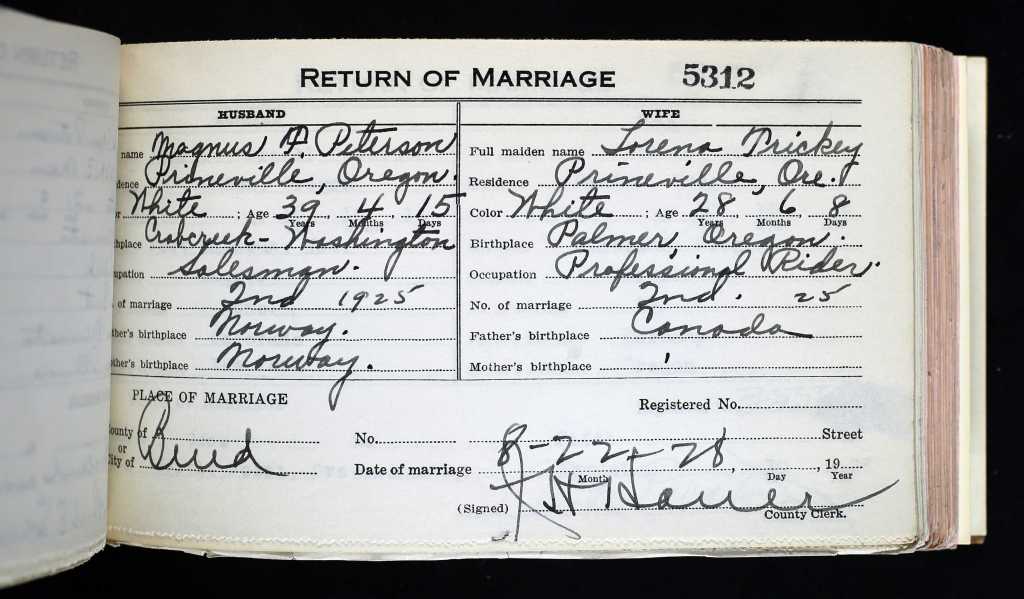 RETURN OF MARRIAGE 5312
HUSBAND WIFE
name Magnus A. Peterson Full maiden name Lorena Trickey
dence Prineville, Oregon. Residence Prineville, Ore.
or White ; Age 39 Years, 4 Months, 15 Days Color White ; Age 28 Years, 6 Months, 8 Days
hplace Crabcreek - Washington Birthplace Palmer, Oregon.
upation Salesman. Occupation Professional Rider.
. of marriage 2nd 1925 No. of marriage 2nd. 25
ther's birthplace Norway. Father's birthplace Canada
other's birthplace Norway. Mother's birthplace '
PLACE OF MARRIAGE Registered No.
ounty of
or
City of Bend No. Street
Date of marriage 8-22-28, Month Day, 19 Year
(Signed) Haner
County Clerk.